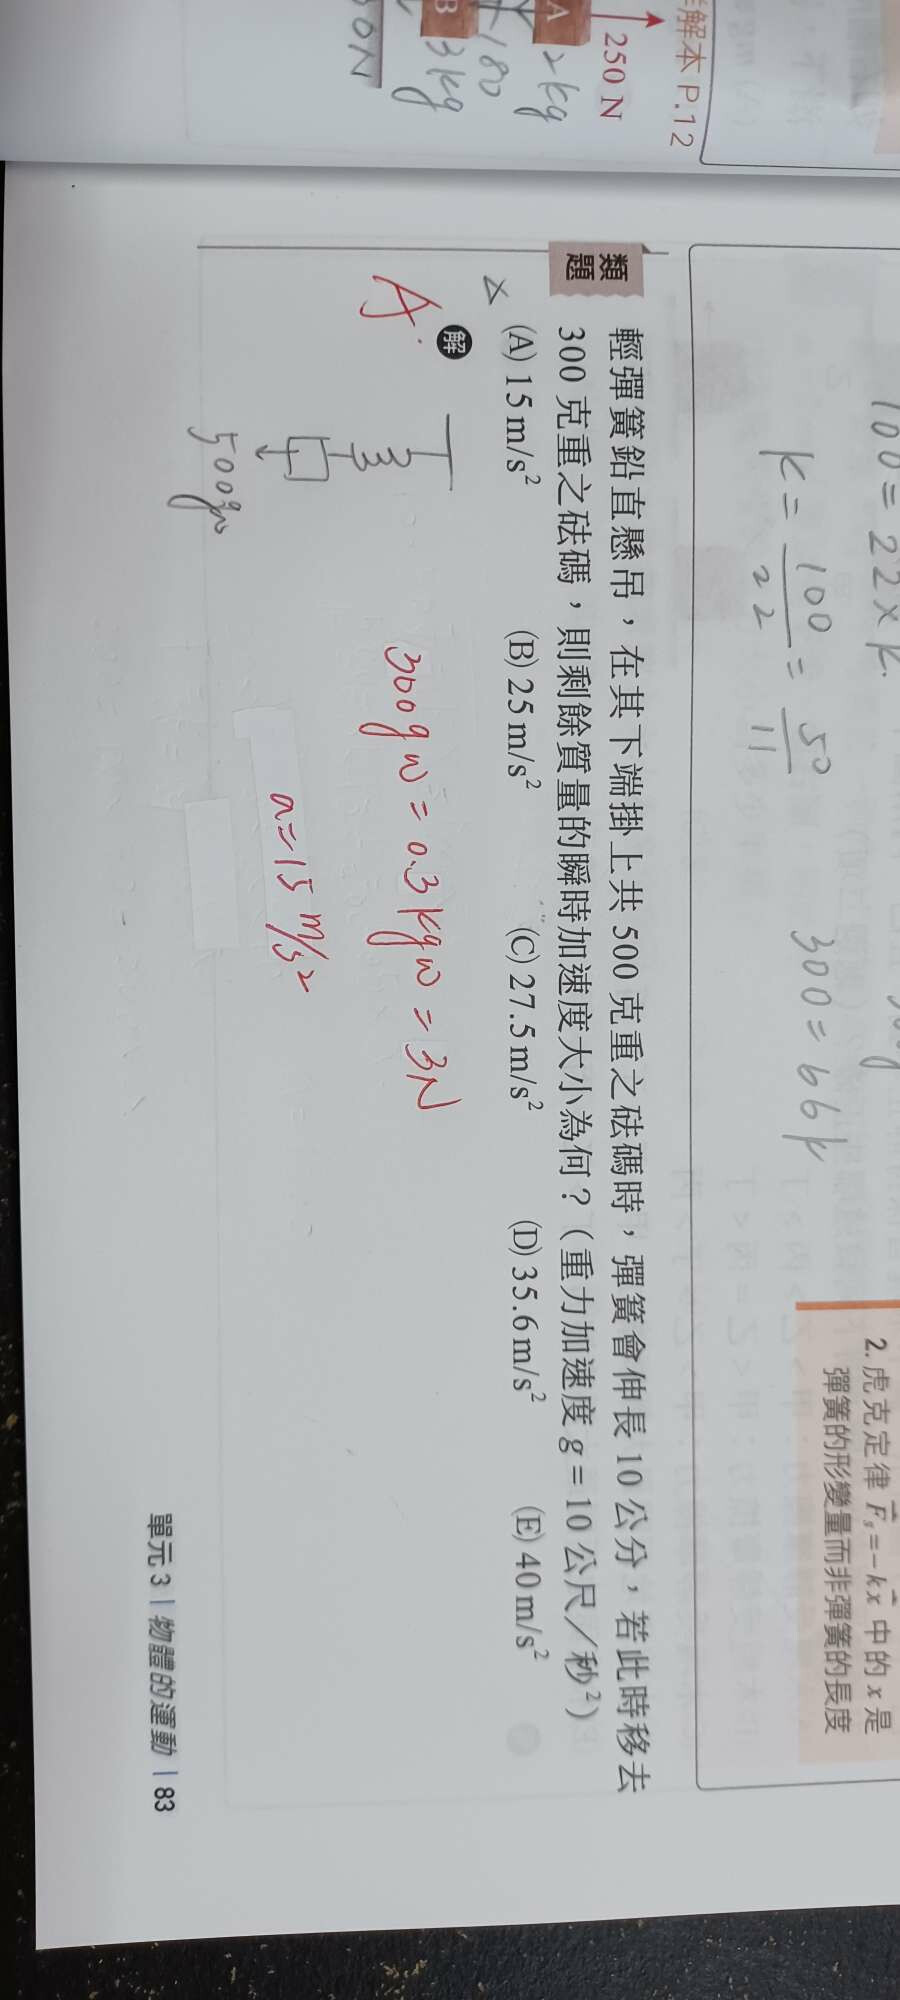 詳解本 P.12
250 N
A
2kg
180
B
3kg
0N
100=22×k
k=100/22=50/11
300=66k
2. 虎克定律 F⃗s=-kx⃗ 中的 x 是
彈簧的形變量而非彈簧的長度
類題
輕彈簧鉛直懸吊，在其下端掛上共 500 克重之砝碼時，彈簧會伸長 10 公分，若此時移去
300 克重之砝碼，則剩餘質量的瞬時加速度大小為何？（重力加速度 g = 10 公尺／秒²）
(A) 15 m/s² (B) 25 m/s² (C) 27.5 m/s² (D) 35.6 m/s² (E) 40 m/s²
解
A.
500gw
300gw=0.3kgw=3N
a=15 m/s²
單元 3 | 物體的運動 | 83